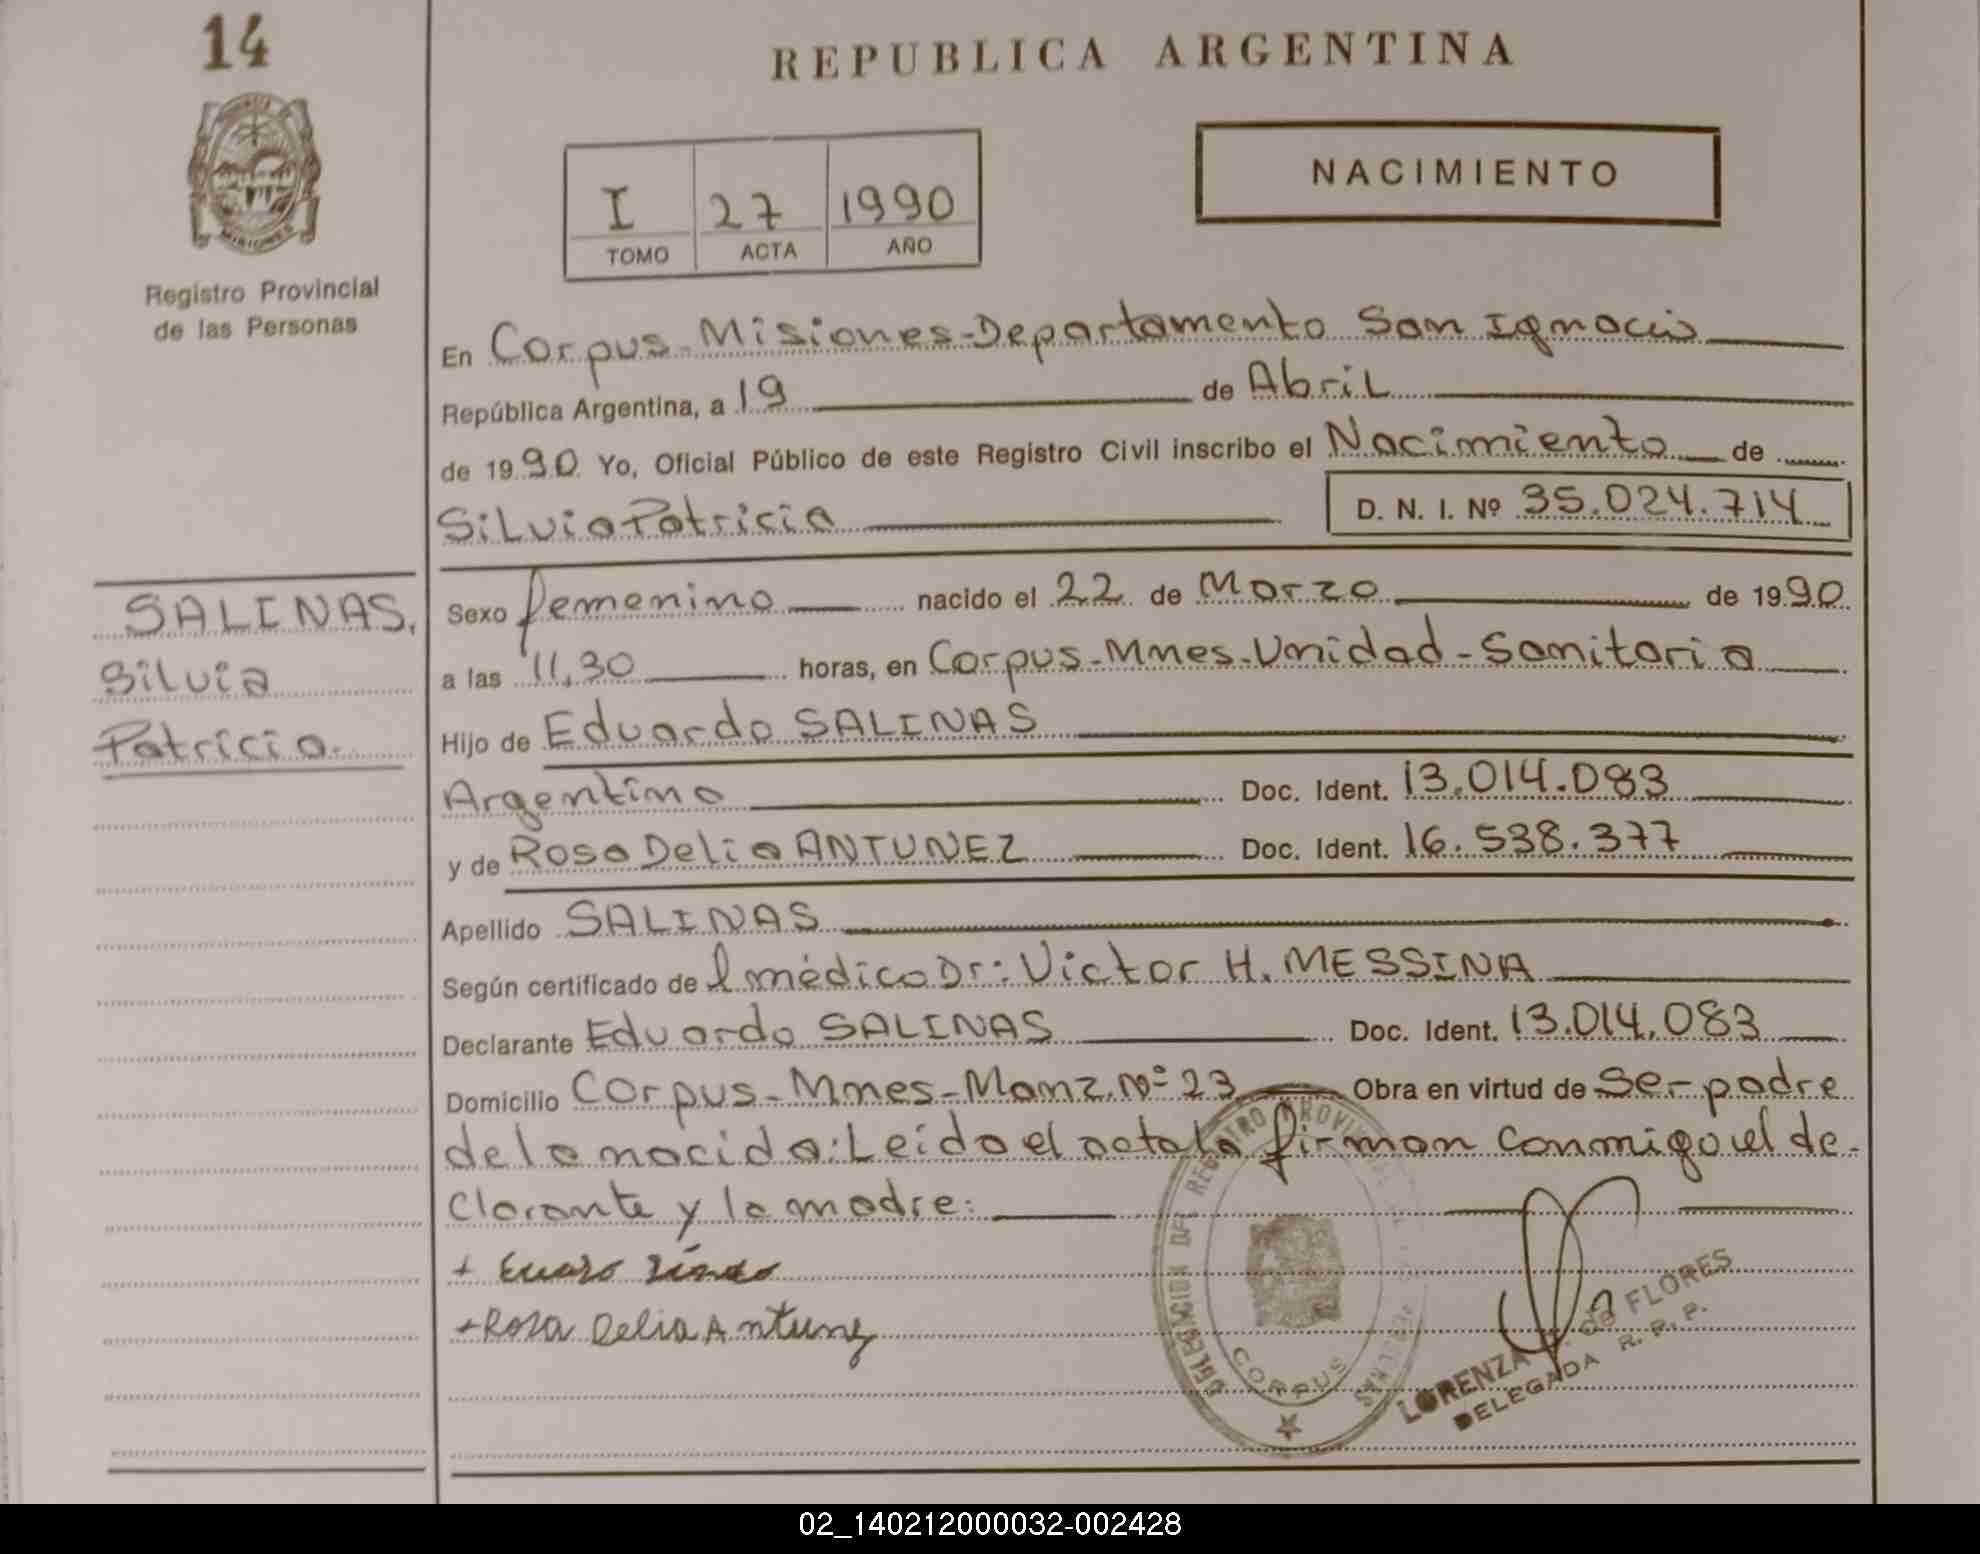 14
REPUBLICA ARGENTINA
NACIMIENTO
I 27 1990
TOMO ACTA AÑO
MISIONES
Registro Provincial
de las Personas
En Corpus-Misiones-Departamento San Ignacio
República Argentina, a 19 de Abril
de 1990 Yo, Oficial Público de este Registro Civil inscribo el Nacimiento de
Silvia Patricia D. N. I. Nº 35.024.714
SALINAS,
Silvia
Patricia.
Sexo femenino nacido el 22 de Marzo de 1990
a las 11,30 horas, en Corpus-Mnes-Unidad-Sanitaria
Hijo de Eduardo SALINAS
Argentino Doc. Ident. 13.014.083
y de Rosa Delia ANTUNEZ Doc. Ident. 16.538.377
Apellido SALINAS
Según certificado del médico Dr: Victor H. MESSINA
Declarante Eduardo SALINAS Doc. Ident. 13.014.083
Domicilio Corpus-Mnes-Manz.Nº 23 Obra en virtud de Ser padre
de la nacida: Leida el acta la firman conmigo el de-
clarante y la madre:
+Rosa Delia Antunez
DELEGACION DEL REGISTRO PROVINCIAL DE LAS PERSONAS
CORPUS
LORENZA DE FLORES
DELEGADA R. P. P.
02_140212000032-002428